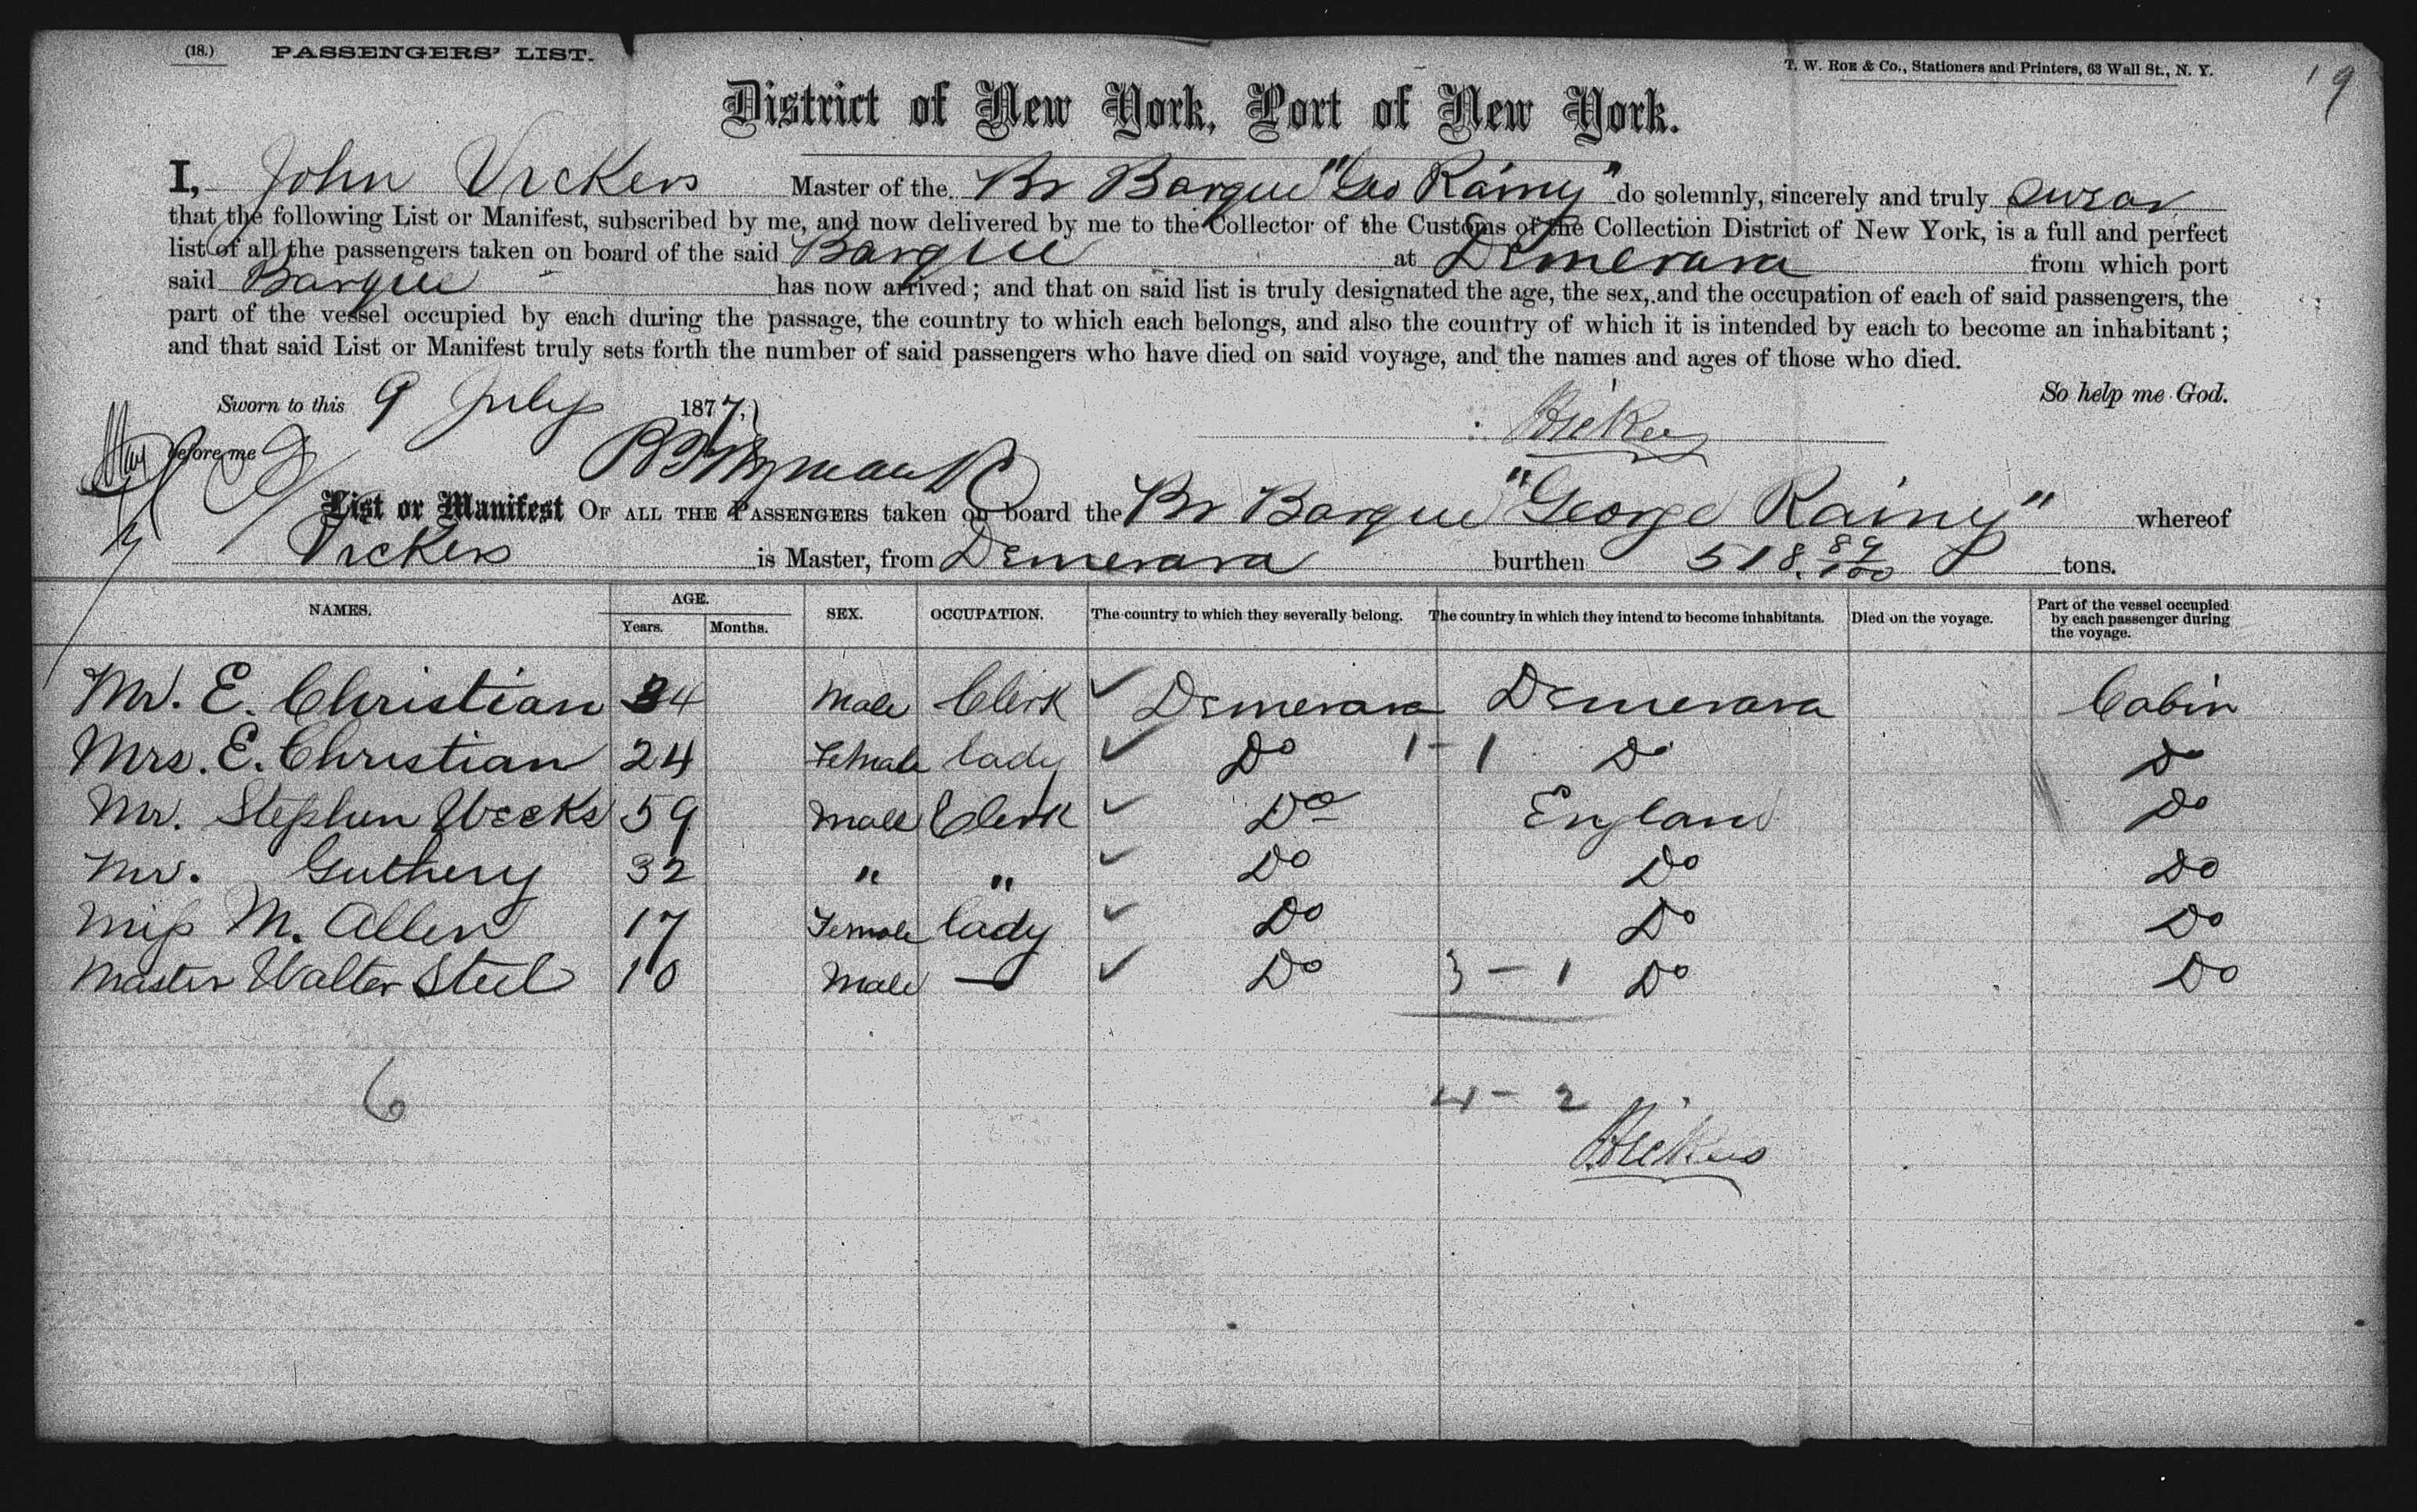 (18.) PASSENGERS' LIST.
T. W. Roe & Co., Stationers and Printers, 63 Wall St., N. Y.
19
District of New York, Port of New York.
I, John Vickers Master of the Br Barque "Geo Rainy" do solemnly, sincerely and truly swear
that the following List or Manifest, subscribed by me, and now delivered by me to the Collector of the Customs of the Collection District of New York, is a full and perfect
list of all the passengers taken on board of the said Barque at Demerara from which port
said Barque has now arrived; and that on said list is truly designated the age, the sex, and the occupation of each of said passengers, the
part of the vessel occupied by each during the passage, the country to which each belongs, and also the country of which it is intended by each to become an inhabitant;
and that said List or Manifest truly sets forth the number of said passengers who have died on said voyage, and the names and ages of those who died.
So help me God.
Sworn to this 9 July 1877,
Vickers
before me
List or Manifest OF ALL THE PASSENGERS taken on board the Br Barque "George Rainy" whereof
Vickers is Master, from Demerara burthen 518 89/100 tons.
NAMES. AGE. Years. Months. SEX. OCCUPATION. The country to which they severally belong. The country in which they intend to become inhabitants. Died on the voyage. Part of the vessel occupied by each passenger during the voyage.
Mr. E. Christian 34 Male Clerk ✓ Demerara Demerara Cabin
Mrs. E. Christian 24 Female lady ✓ Do 1 - 1 Do Do
Mr. Stephen Weeks 59 Male Clerk ✓ Do England Do
Mr. Guthery 32 " " ✓ Do Do Do
Miss M. Allen 17 Female lady ✓ Do Do Do
Master Walter Steel 10 Male — ✓ Do 3 - 1 Do Do
6
4 - 2
Vickers